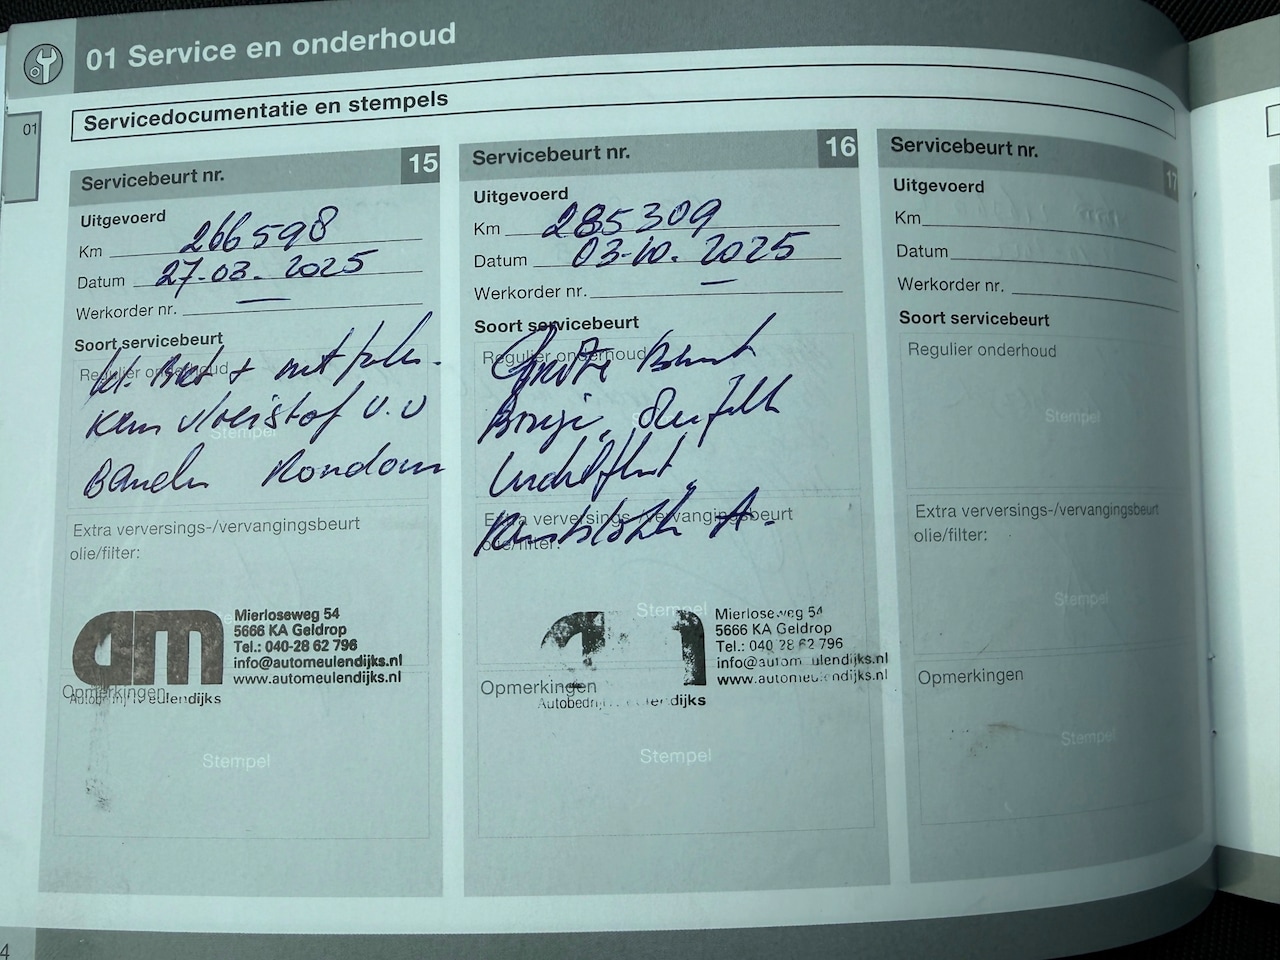 01 Service en onderhoud
01
Servicedocumentatie en stempels
Servicebeurt nr. 15
Uitgevoerd
Km 266598
Datum 27-03-2025
Werkorder nr. —
Soort servicebeurt
Regulier onderhoud
Stempel
Banden Rondom
Extra verversings-/vervangingsbeurt
olie/filter:
am
Mierloseweg 54
5666 KA Geldrop
Tel.: 040-28 62 796
info@automeulendijks.nl
www.automeulendijks.nl
Opmerkingen
Autobedrijf Meulendijks
Stempel
Servicebeurt nr. 16
Uitgevoerd
Km 285309
Datum 03-10-2025
Werkorder nr. —
Soort servicebeurt
Regulier onderhoud
Grote Beurt
Extra verversings-/vervangingsbeurt
olie/filter:
Stempel
Mierloseweg 54
5666 KA Geldrop
Tel.: 040 28 62 796
info@automeulendijks.nl
www.automeulendijks.nl
Opmerkingen
Autobedrijf Meulendijks
Stempel
Servicebeurt nr. 17
Uitgevoerd
Km
Datum
Werkorder nr.
Soort servicebeurt
Regulier onderhoud
Stempel
Extra verversings-/vervangingsbeurt
olie/filter:
Stempel
Opmerkingen
Stempel
4